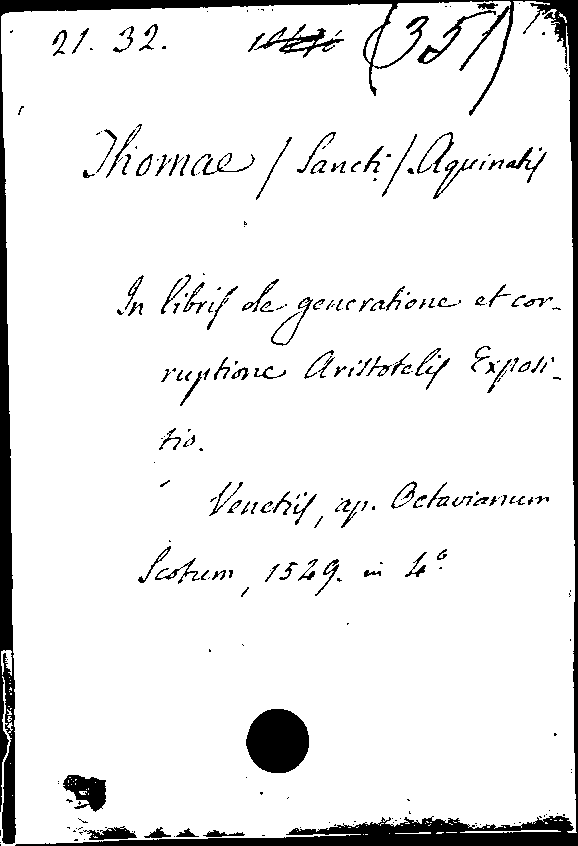 21. 32. (351) 1.
Thomae / Sancti / Aquinatis
In libris de generatione et cor-
ruptione Aristotelis Exposi-
tio.
Venetiis, ap. Octavianum
Scotum, 1529. in 4º